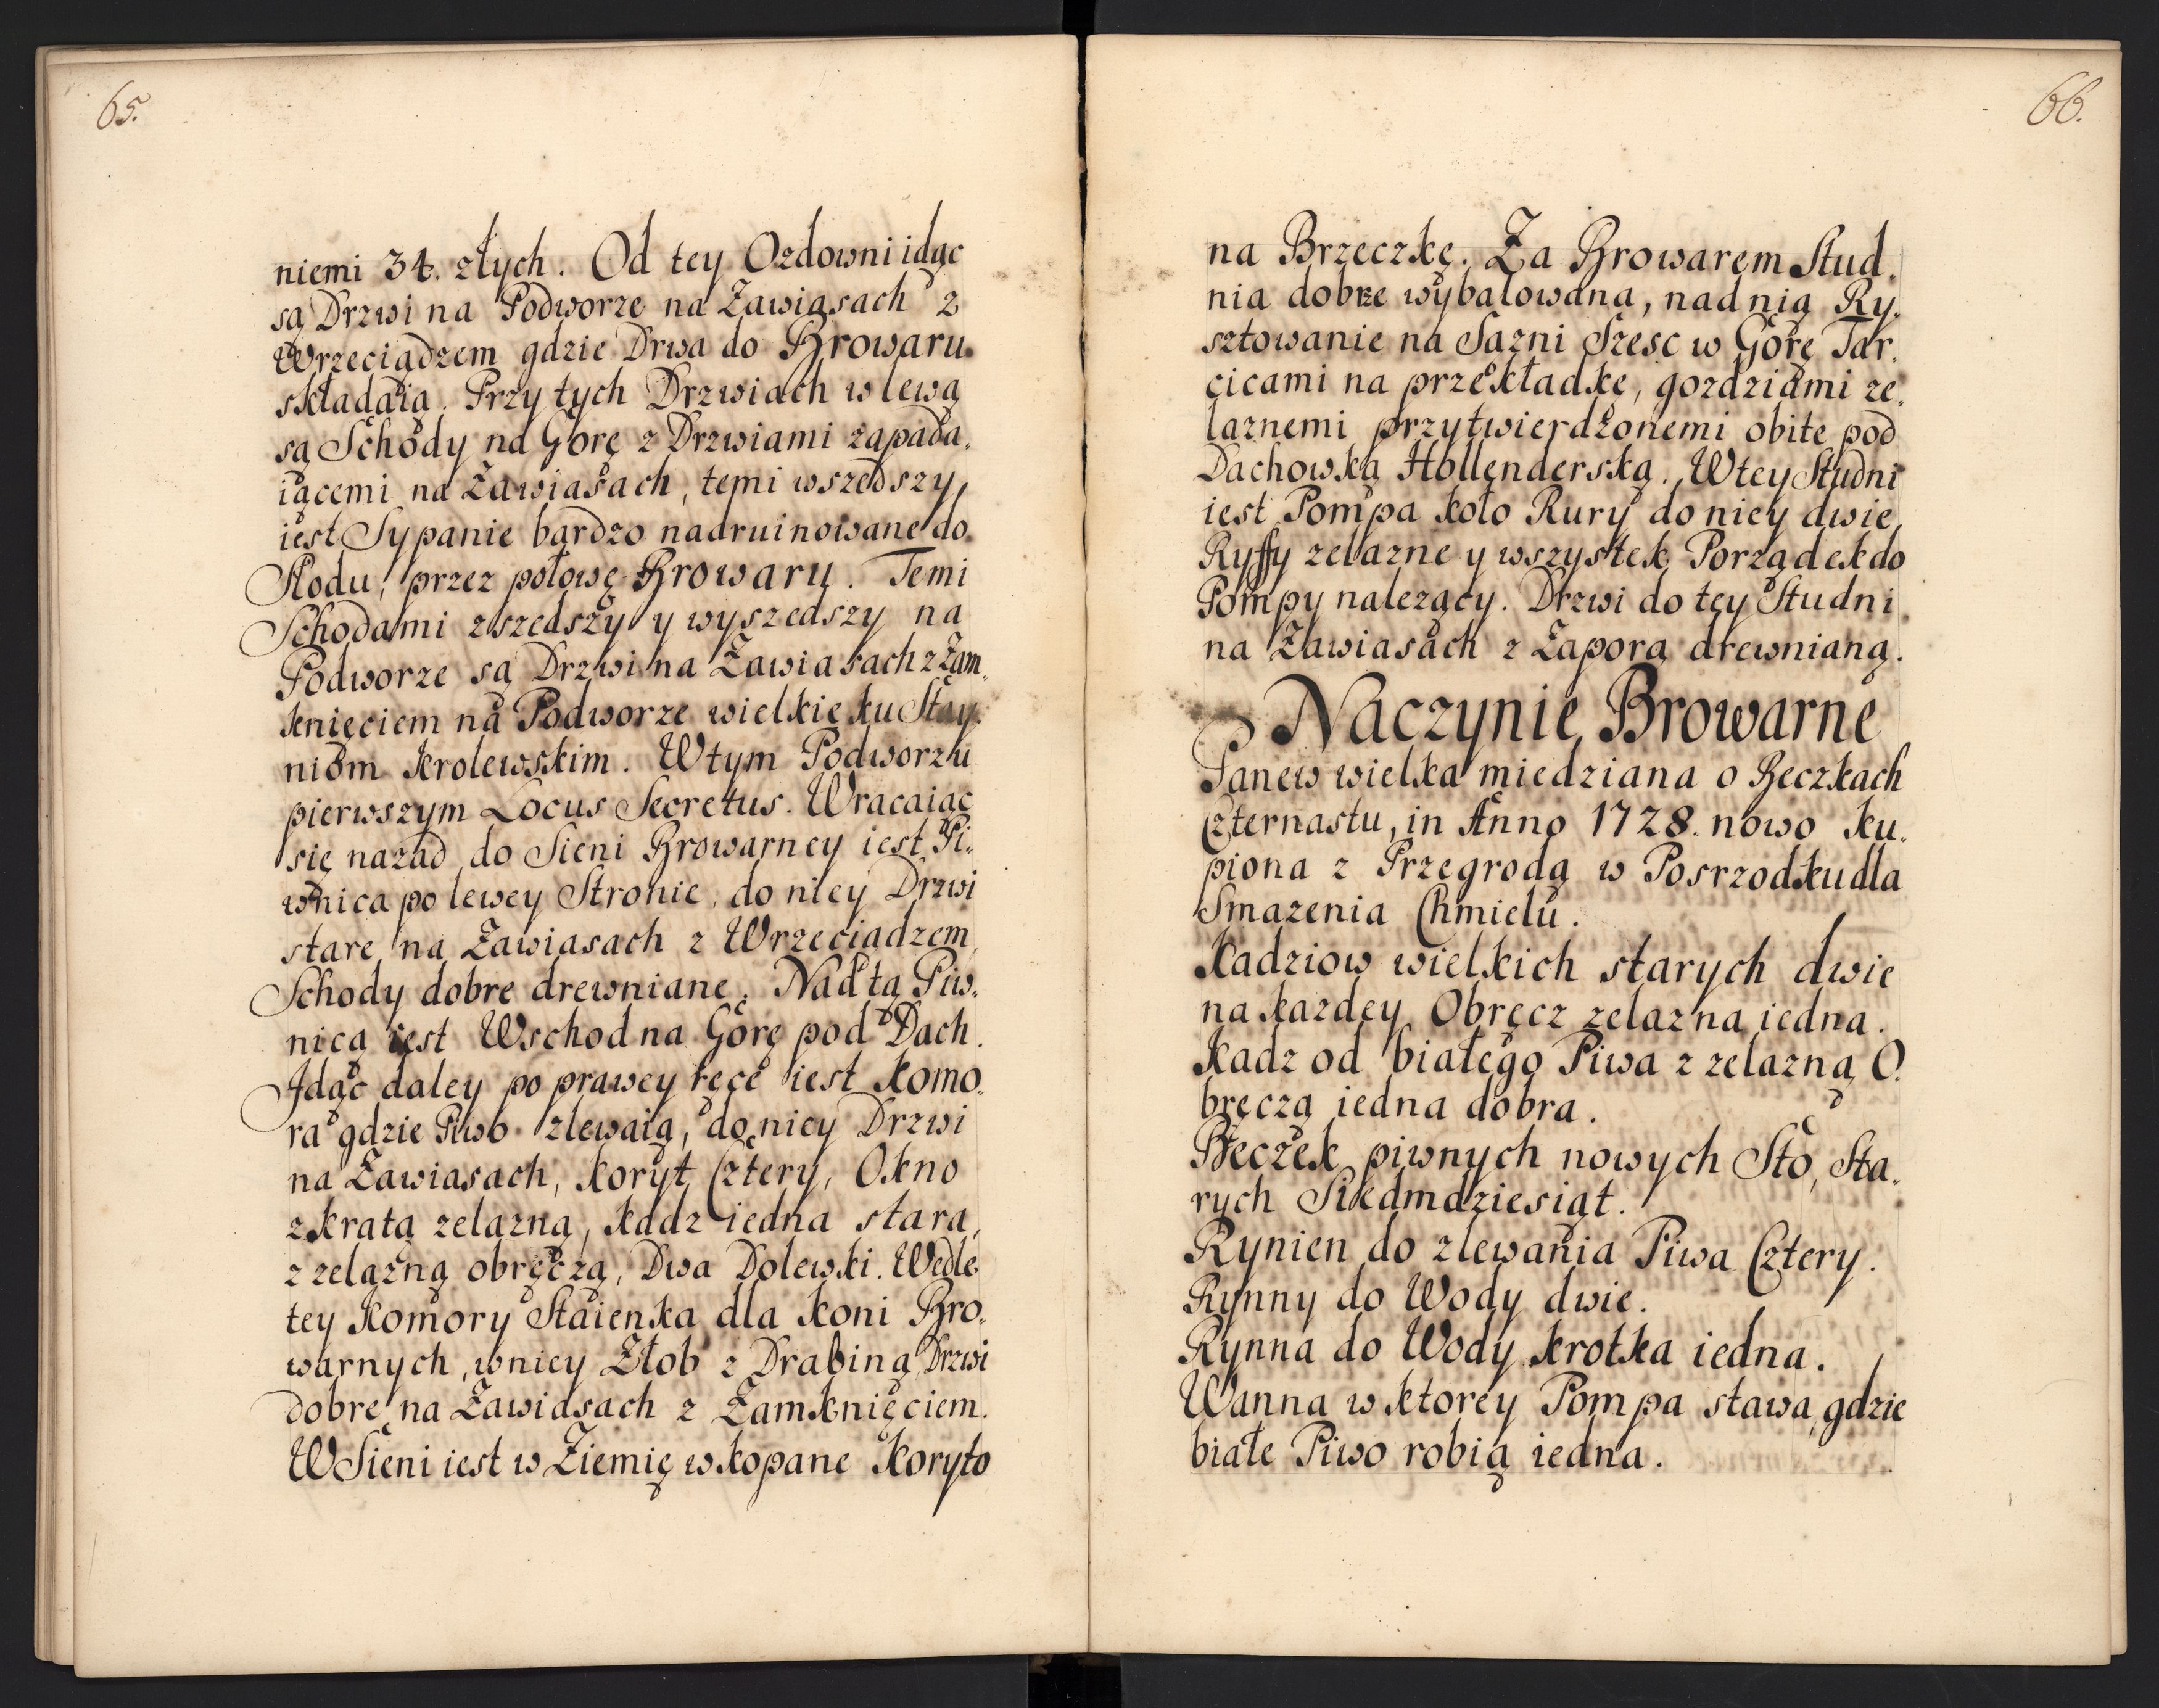 65.
niemi 34. złych. Od tey Ozdowni idąc
są Drzwi na Podworze na Zawiasach z
Wrzeciądzem gdzie Drwa do Browaru
składaią. Przy tych Drzwiach w lewą
są Schody na Gorę z Drzwiami zapada.
iącemi na Zawiasach, temi wszedszy,
iest Sypanie bardzo nadruinowane do
Słodu, przez połowę Browaru. Temi
Schodami zszedszy y wyszedszy na
Podworze są Drzwi na Zawiasach z Zam.
knięciem na Podworze wielkie ku Stay.
niom krolewskim. W tym Podworzu
pierwszym Locus Secretus. Wracaiąc
się nazad do Sieni Browarney iest Pi.
wnica po lewey Stronie, do niey Drzwi
stare na Zawiasach z Wrzeciadzem
Schody dobre drewniane. Nad tą Piw.
nicą iest Wschod na Gorę pod Dach.
Idąc daley po prawey ręce iest Komo.
ra gdzie Piwo zlewaią, do niey Drzwi
na Zawiasach, Koryt Cztery, Okno
z kratą zelazną, Kadz iedna stara,
z zelazną obręczą, Dwa Dolewki. Wedle
tey Komory Staienka dla Koni Bro.
warnych, w niey Złob z Drabiną Drzwi
dobre na Zawiasach z Zamknięciem.
W Sieni iest w Ziemię wkopane Koryto
66.
na Brzeczkę. Za Browarem Stud.
nia dobrze wybalowana, nad nią Ry.
sztowanie na Sazni Szesc w Gorę Tar.
cicami na przekładkę, gozdziami ze.
laznemi przytwierdzonemi obite pod
Dachowką Hollenderską. W tey Studni
iest Pompa koło Rury do niey dwie
Ryffy zelazne y wszystek Porządek do
Pompy nalezący. Drzwi do tey Studni
na Zawiasach z Zaporą drewnianą.
Naczynie Browarne
Panew wielka miedziana o Beczkach
Czternastu, in Anno 1728. nowo ku.
piona z Przegrodą w Posrzodku dla
Smazenia Chmielu.
Kadziow wielkich starych dwie
na kazdey Obręcz zelazna iedna.
Kadz od białego Piwa z zelazną O.
bręczą iedna dobra.
Beczek piwnych nowych Sto, Sta.
rych Siedmdziesiąt.
Rynien do zlewania Piwa Cztery.
Rynny do Wody dwie.
Rynna do Wody krotka iedna.
Wanna w ktorey Pompa stawa, gdzie
białe Piwo robią iedna.